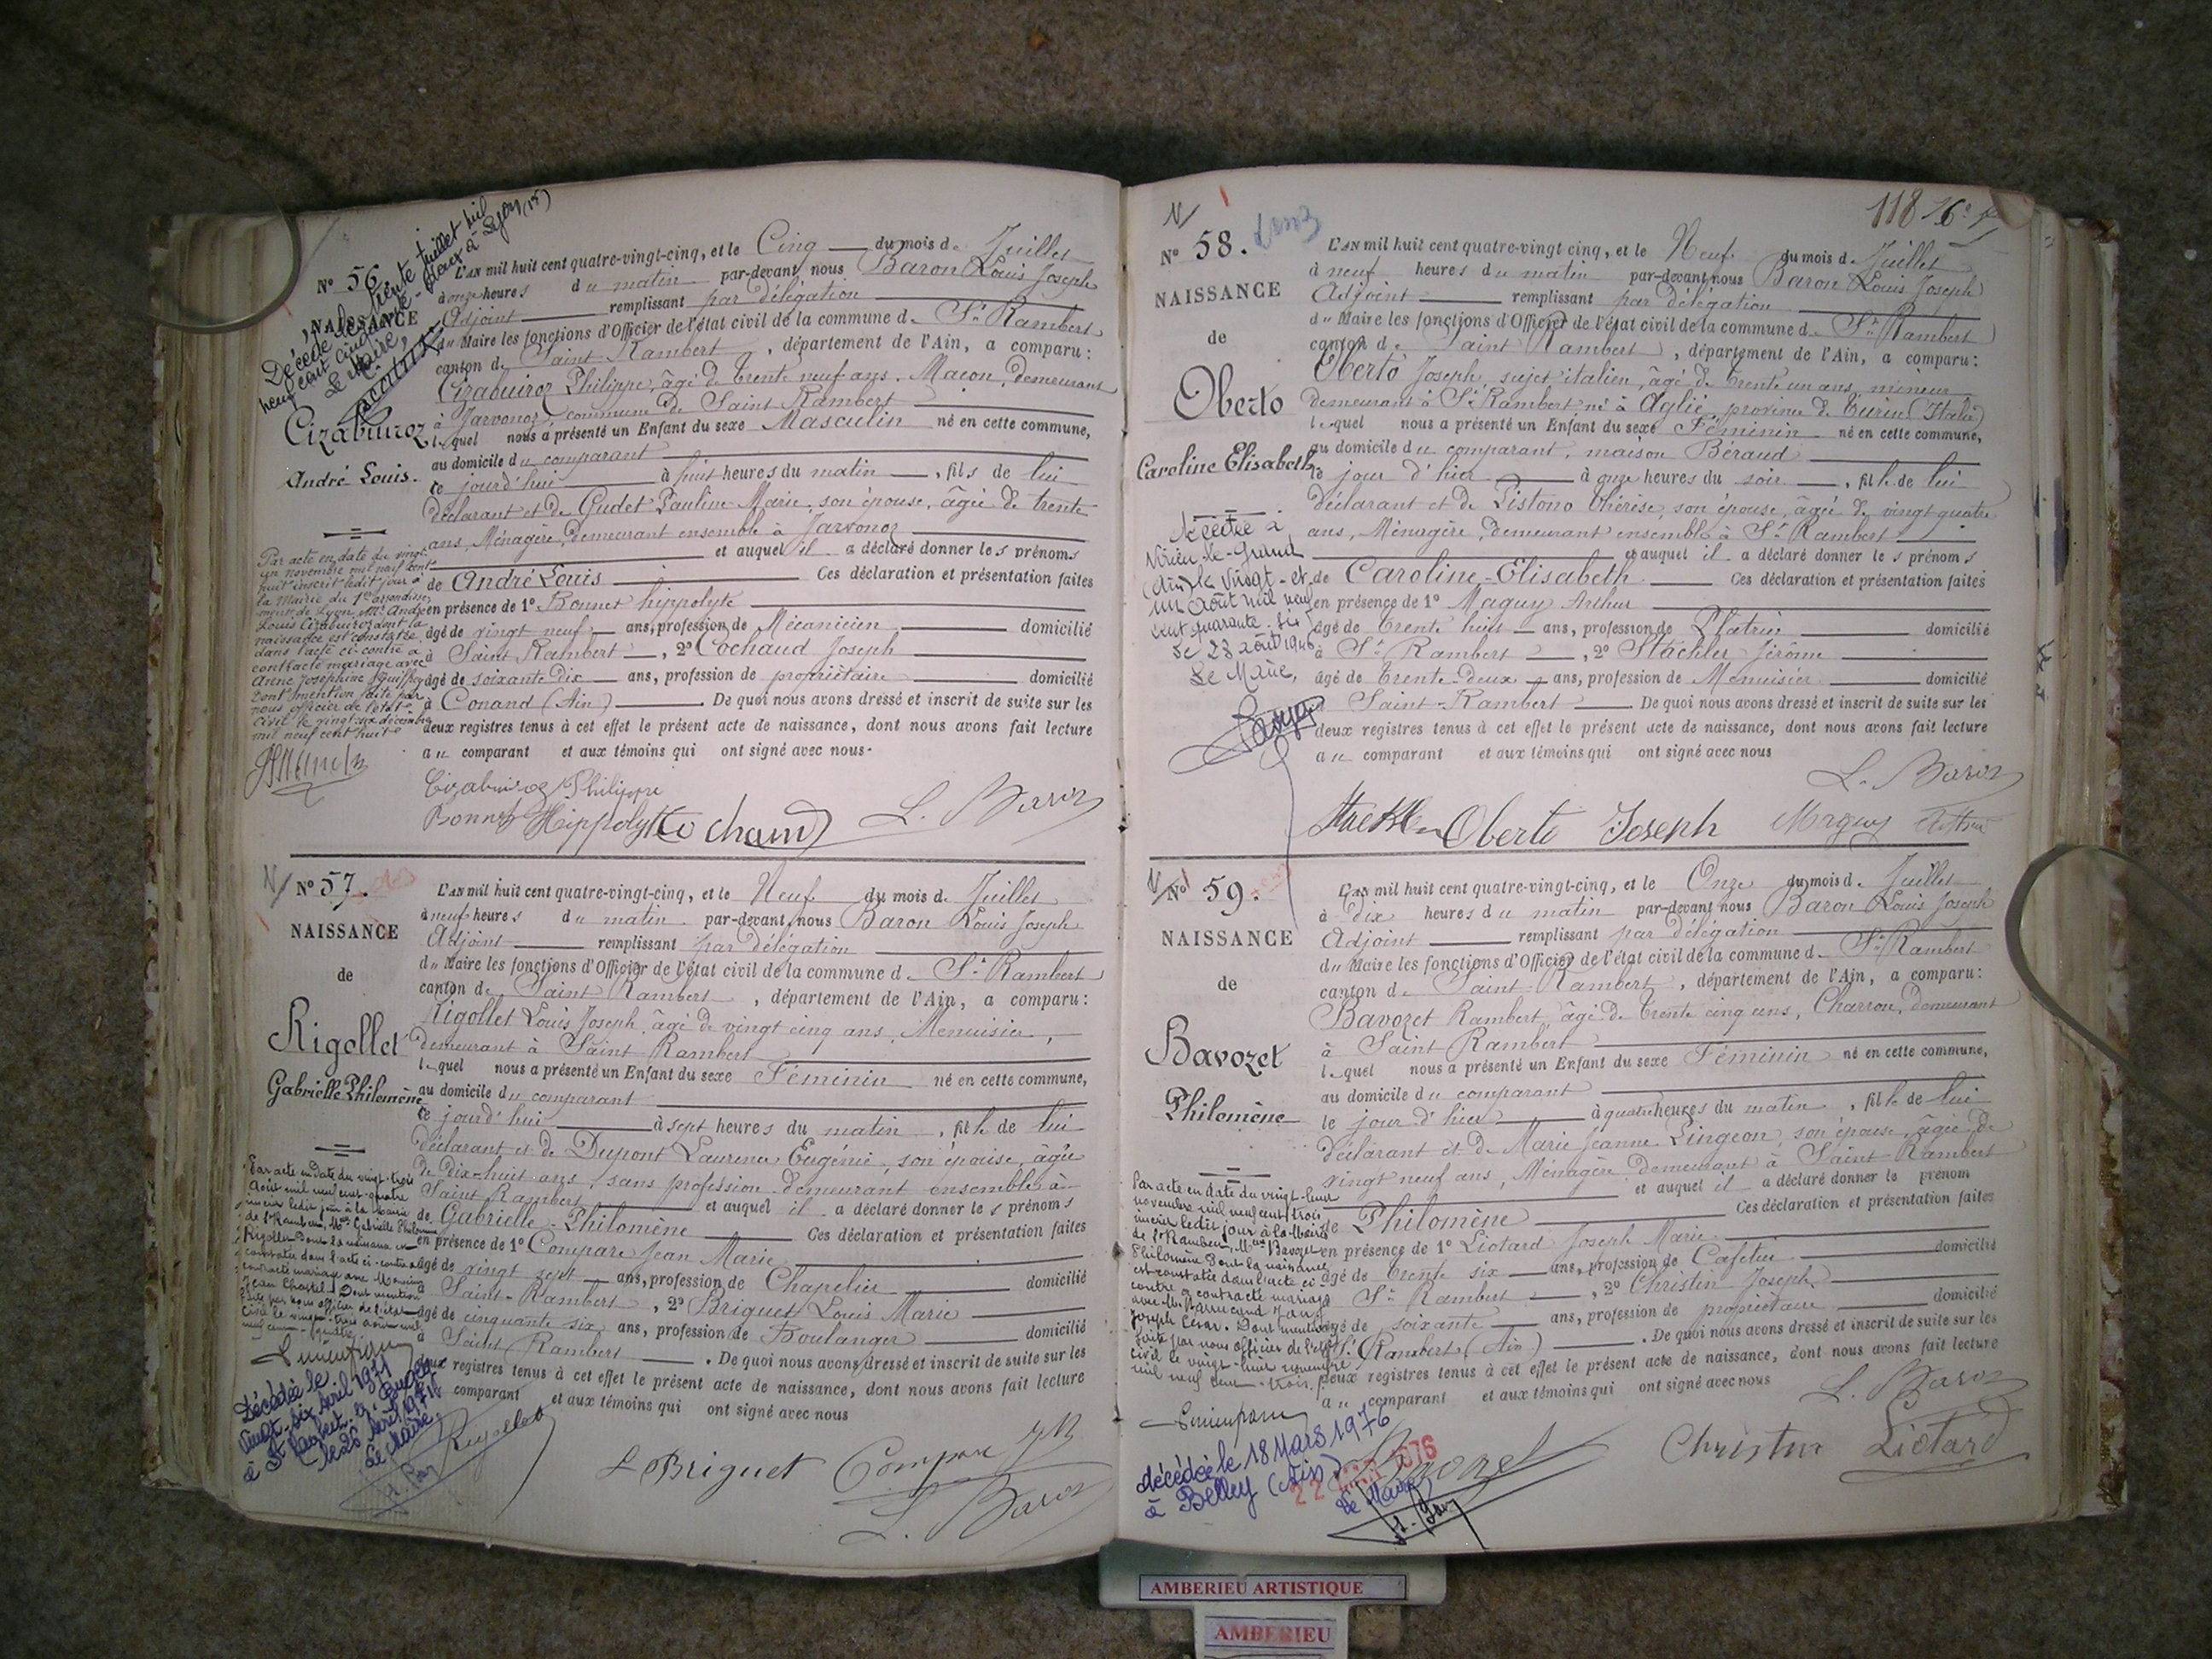 Nº 56.
NAISSANCE
Décédé le trente juillet mil
neuf cent cinquante-deux à Lyon (1er)
Le Maire,
Cizabuiroz
André Louis.
L'AN mil huit cent quatre-vingt-cinq, et le Cinq du mois de Juillet
à onze heures du matin par-devant nous Baron Louis Joseph
Adjoint remplissant par délégation
du Maire les fonctions d'Officier de l'état civil de la commune de St Rambert
canton de Saint Rambert, département de l'Ain, a comparu:
Cizabuiroz Philippe, âgé de trente neuf ans, Maçon, demeurant
à Javornoz, commune de Saint Rambert
lequel nous a présenté un Enfant du sexe Masculin né en cette commune,
au domicile du comparant
ce jourd'hui à huit heures du matin, fils de lui
déclarant et de Gudet Pauline Marie, son épouse, âgée de trente
ans, Ménagère, demeurant ensemble à Javornoz
et auquel il a déclaré donner les prénoms
de André Louis Ces déclaration et présentation faites
en présence de 1º Bonnet hippolyte
âgé de vingt neuf ans, profession de Mécanicien domicilié
à Saint Rambert, 2º Cochaud Joseph
âgé de soixante dix ans, profession de propriétaire domicilié
à Conand (Ain). De quoi nous avons dressé et inscrit de suite sur les
deux registres tenus à cet effet le présent acte de naissance, dont nous avons fait lecture
au comparant et aux témoins qui ont signé avec nous.
Par acte en date du vingt
un novembre mil neuf cent
huit inscrit ledit jour à
la Mairie du 1er arrondisse
ment de Lyon, Mr André
Louis Cizabuiroz dont la
naissance est constatée
dans l'acte ci-contre a
contracté mariage avec
Anne Joséphine
Dont mention faite par
nous officier de l'état
civil le vingt-six décembre
mil neuf cent huit
Cizabuiroz Philippe
Bonnet Hippolyte Cochaud L. Baron
Nº 57.
NAISSANCE
de
Rigollet
Gabrielle Philomène
L'AN mil huit cent quatre-vingt-cinq, et le Neuf du mois de Juillet
à neuf heures du matin par-devant nous Baron Louis Joseph
Adjoint remplissant par délégation
du Maire les fonctions d'Officier de l'état civil de la commune de St Rambert
canton de Saint Rambert, département de l'Ain, a comparu:
Rigollet Louis Joseph, âgé de vingt cinq ans, Menuisier,
demeurant à Saint Rambert
lequel nous a présenté un Enfant du sexe Féminin né en cette commune,
au domicile du comparant
ce jourd'hui à sept heures du matin, fille de lui
déclarant et de Dupont Laurence Eugénie, son épouse, âgée
de dix-huit ans, sans profession demeurant ensemble à
Saint Rambert et auquel il a déclaré donner les prénoms
de Gabrielle-Philomène Ces déclaration et présentation faites
en présence de 1º Compare Jean Marie
âgé de vingt sept ans, profession de Chapelier domicilié
à Saint-Rambert, 2º Briguet Louis Marie
âgé de cinquante six ans, profession de Boulanger domicilié
à Saint Rambert. De quoi nous avons dressé et inscrit de suite sur les
deux registres tenus à cet effet le présent acte de naissance, dont nous avons fait lecture
au comparant et aux témoins qui ont signé avec nous
Par acte en date du vingt-trois
Août mil neuf cent-quatre
inscrit ledit jour à la Mairie
de St Rambert, Mlle Gabrielle Philomène
Rigollet dont la naissance est
constatée dans l'acte ci-contre a
contracté mariage avec Monsieur
Jean Dont mention
faite par nous officier de l'état
civil le vingt-trois août mil
neuf cent-quatre
Décédée le
vingt-six Avril 1971
à St Rambert-en-Bugey
le 26 Avril 1971
Le Maire,
Rigollet
L Briguet Compare JM
L. Baron
118
Nº 58.
NAISSANCE
de
Oberto
Caroline Elisabeth
L'AN mil huit cent quatre-vingt cinq, et le Neuf du mois de Juillet
à neuf heures du matin par-devant nous Baron Louis Joseph
Adjoint remplissant par délégation
du Maire les fonctions d'Officier de l'état civil de la commune de St Rambert
canton de Saint Rambert, département de l'Ain, a comparu:
Oberto Joseph, sujet italien, âgé de trente un ans, mineur
demeurant à St Rambert né à Aglié, province de Turin (Italie)
lequel nous a présenté un Enfant du sexe Féminin né en cette commune,
au domicile du comparant, maison Béraud
le jour d'hier à onze heures du soir, fille de lui
déclarant et de Listono Thérèse, son épouse, âgée de vingt quatre
ans, Ménagère, demeurant ensemble à St Rambert
et auquel il a déclaré donner les prénoms
de Caroline-Elisabeth Ces déclaration et présentation faites
en présence de 1º Maguy Arthur
âgé de trente huit ans, profession de Plâtrier domicilié
à St Rambert, 2º Stächler Jérôme
âgé de trente-deux ans, profession de Menuisier domicilié
à Saint-Rambert De quoi nous avons dressé et inscrit de suite sur les
deux registres tenus à cet effet le présent acte de naissance, dont nous avons fait lecture
au comparant et aux témoins qui ont signé avec nous
Décédée à
Virieu-le-Grand
(Ain) le vingt-et-
un août mil neuf
cent quarante-six
le 23 août 1946
Le Maire,
L. Baron
Oberto Joseph Maguy Arthur
Nº 59.
NAISSANCE
de
Bavozet
Philomène
L'AN mil huit cent quatre-vingt-cinq, et le Onze du mois de Juillet
à dix heures du matin par-devant nous Baron Louis Joseph
Adjoint remplissant par délégation
du Maire les fonctions d'Officier de l'état civil de la commune de St Rambert
canton de Saint-Rambert, département de l'Ain, a comparu:
Bavozet Rambert, âgé de trente cinq ans, Charron, demeurant
à Saint Rambert
lequel nous a présenté un Enfant du sexe Féminin né en cette commune,
au domicile du comparant
le jour d'hier à quatre heures du matin, fille de lui
déclarant et de Marie Jeanne Pingeon, son épouse, âgée de
vingt neuf ans, Ménagère demeurant à Saint-Rambert
et auquel il a déclaré donner le prénom
de Philomène Ces déclaration et présentation faites
en présence de 1º Liotard Joseph Marie
âgé de trente six ans, profession de Cafetier domicilié
à St Rambert, 2º Christin Joseph
âgé de soixante ans, profession de propriétaire domicilié
à St Rambert (Ain). De quoi nous avons dressé et inscrit de suite sur les
deux registres tenus à cet effet le présent acte de naissance, dont nous avons fait lecture
au comparant et aux témoins qui ont signé avec nous
Par acte en date du vingt-huit
novembre mil neuf cent trois
inscrit ledit jour à la Mairie
de St Rambert, Mlle Bavozet
Philomène dont la naissance
est constatée dans l'acte ci
contre a contracté mariage
avec M. Barrucand
Joseph César. Dont mention
faite par nous officier de l'état
civil le vingt-huit novembre
mil neuf cent-trois.
décédée le 18 Mars 1976
à Belley (Ain)
22 1976
Le Maire
L. Baron
Bavozet Christin Liotard
AMBERIEU ARTISTIQUE
AMBERIEU